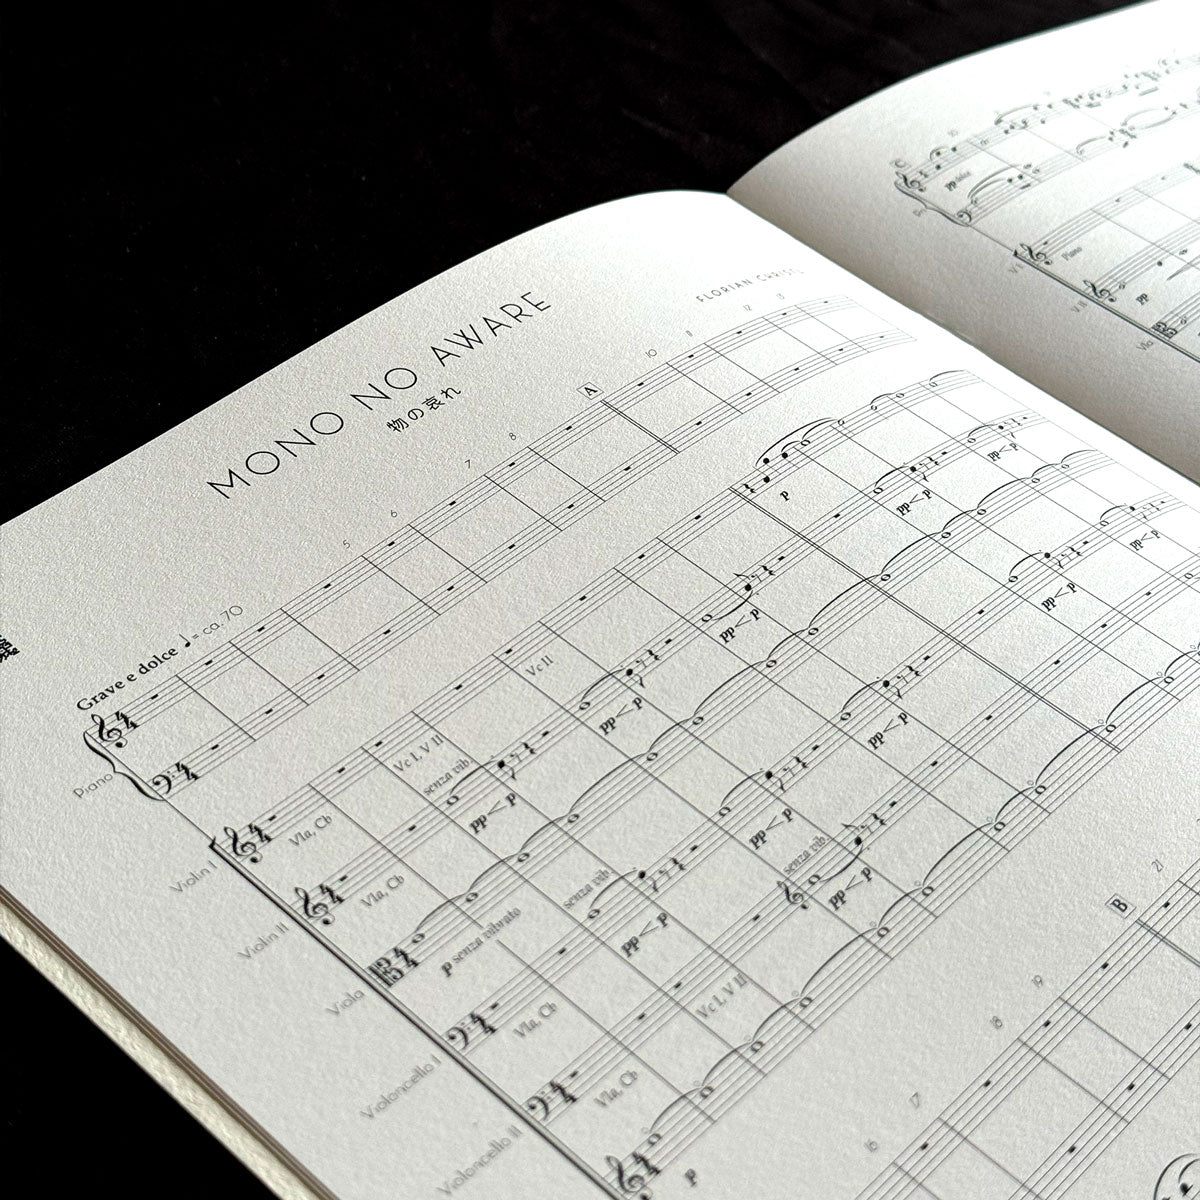 MONO NO AWARE
物の哀れ
FLORIAN CHRISTL
Grave e dolce ♩ = ca. 70
5
6
7
8
A
10
11
12
13
Piano
Violin I
Vla, Cb
Vc I, V II
Vc II
p
Violin II
Vla, Cb
senza vib
pp < p
pp < p
pp < p
pp < p
pp < p
Viola
p senza vibrato
Violoncello I
Vla, Cb
senza vib
pp < p
pp < p
pp < p
pp < p
pp < p
Violoncello II
Vla, Cb
Vc I, V II
senza vib
pp < p
p
16
17
18
19
B
21
C
Pno
pp dolce
V I
Piano
V II
pp
Vla